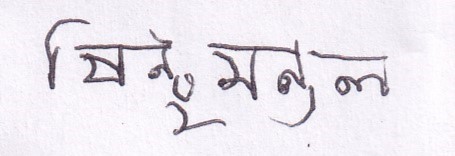 পিন্টু মন্ডল